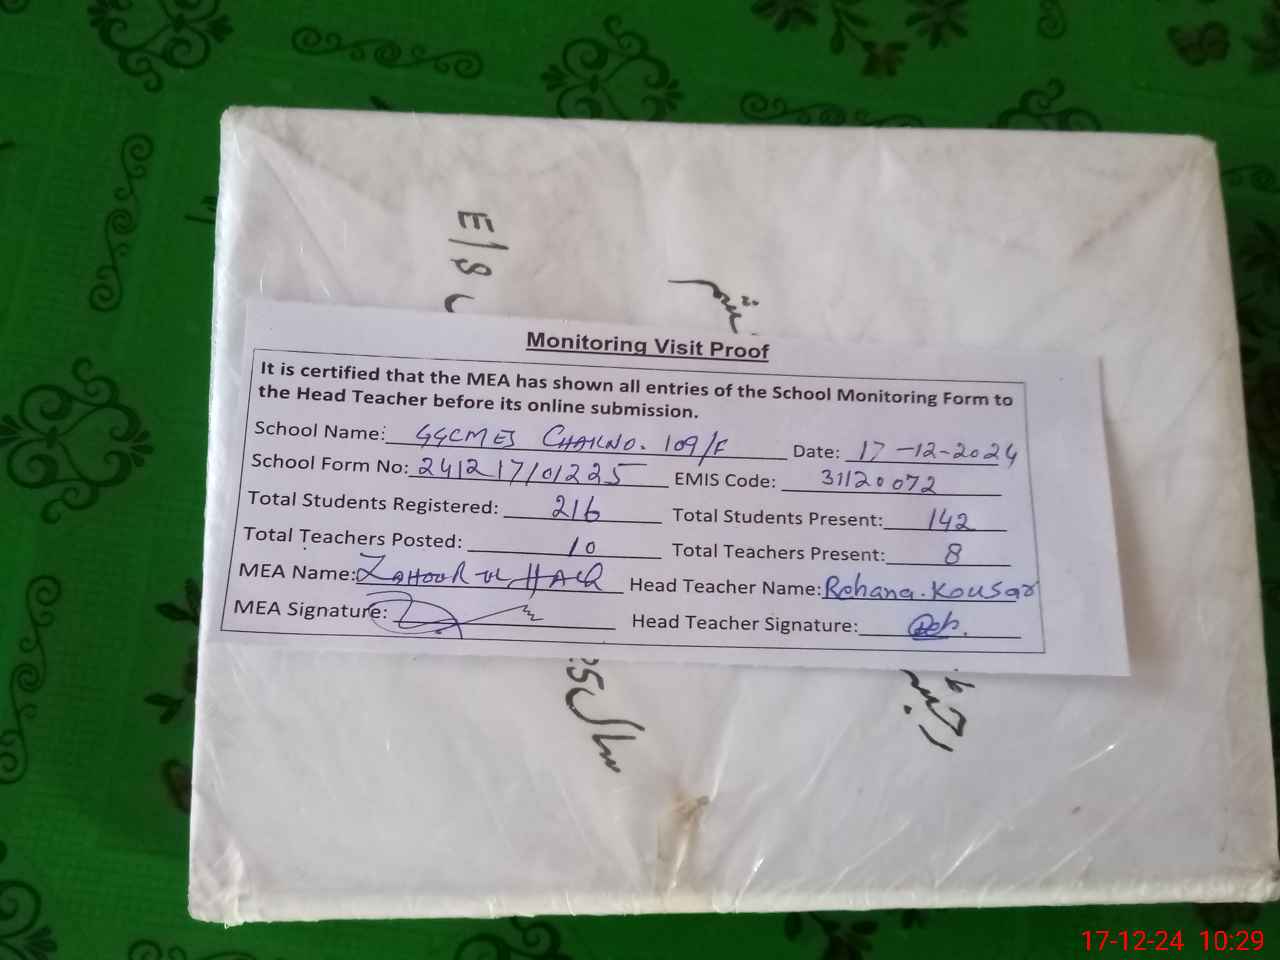 Monitoring Visit Proof
It is certified that the MEA has shown all entries of the School Monitoring Form to
the Head Teacher before its online submission.
School Name: GGCMES CHAKNO. 109/F Date: 17-12-2024
School Form No: 241217/01225 EMIS Code: 31120072
Total Students Registered: 216 Total Students Present: 142
Total Teachers Posted: 10 Total Teachers Present: 8
MEA Name: ZAHOOR UL HAQ Head Teacher Name: Rehana Kousar
MEA Signature: Head Teacher Signature:
17-12-24 10:29